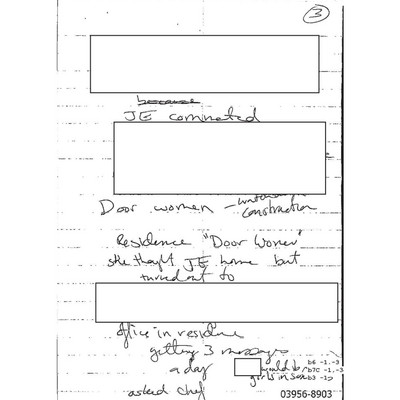 3
because
JE commented
Door women - watching
construction
Residence "Door Women"
she thought JE home but
turned out to
office in residence
getting 3 messages
a day would b
b6 -1,-3
b7C -1,-3
girls in
asked chef
03956-8903